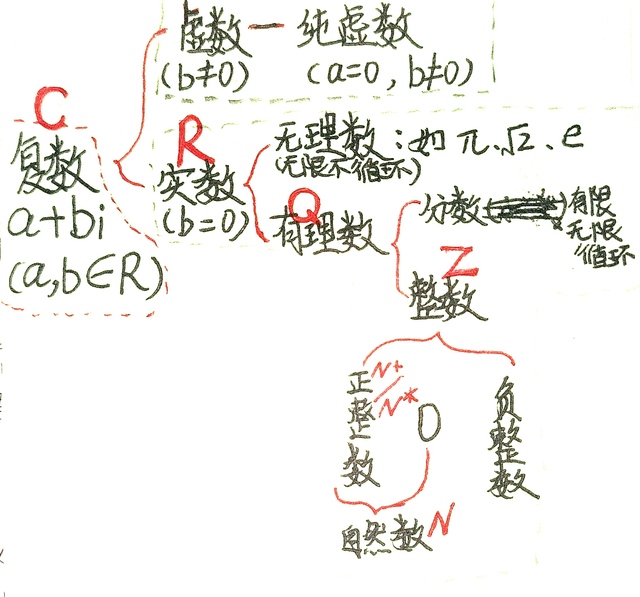 虚数 — 纯虚数
(b≠0) (a=0, b≠0)
C
复数
a+bi
(a,b∈R)
R
实数
(b=0)
无理数：如 π、√2、e
(无限不循环)
Q
有理数
分数( )有限
无限
循环
Z
整数
正整数
N+
N*
0
负整数
自然数 N